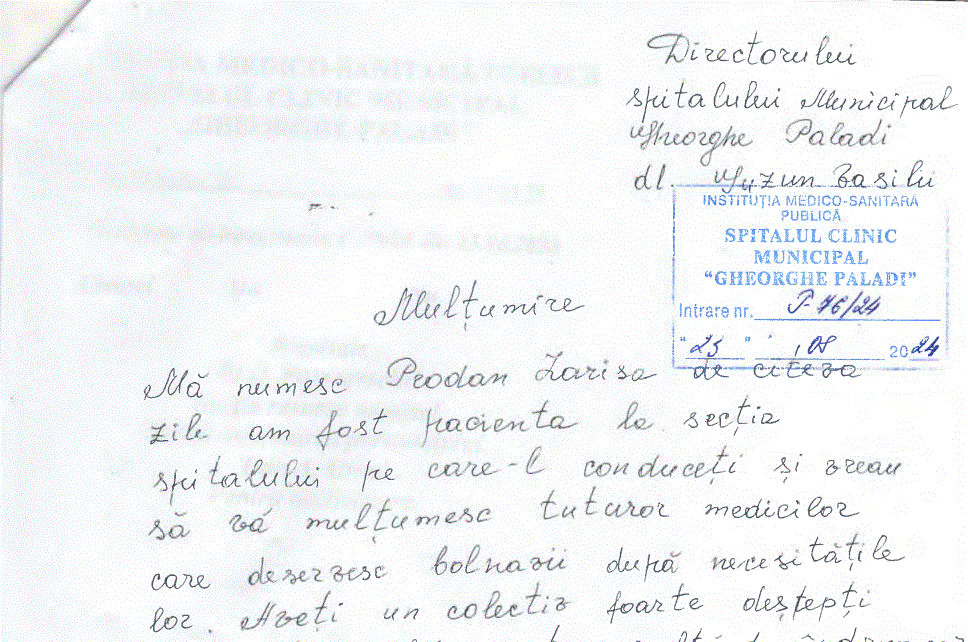 Directorului
spitalului Municipal
Gheorghe Paladi
dl. Guzun Vasilii
INSTITUȚIA MEDICO-SANITARĂ
PUBLICĂ
SPITALUL CLINIC
MUNICIPAL
"GHEORGHE PALADI"
Intrare nr. P-76/24
"23" 08 2024
Mulțumire
Mă numesc Prodan Larisa de cîteva
zile am fost pacienta la secția
spitalului pe care-l conduceți și vreau
să vă mulțumesc tuturor medicilor
care deservesc bolnavii după necesitățile
lor. Aveți un colectiv foarte deștepți